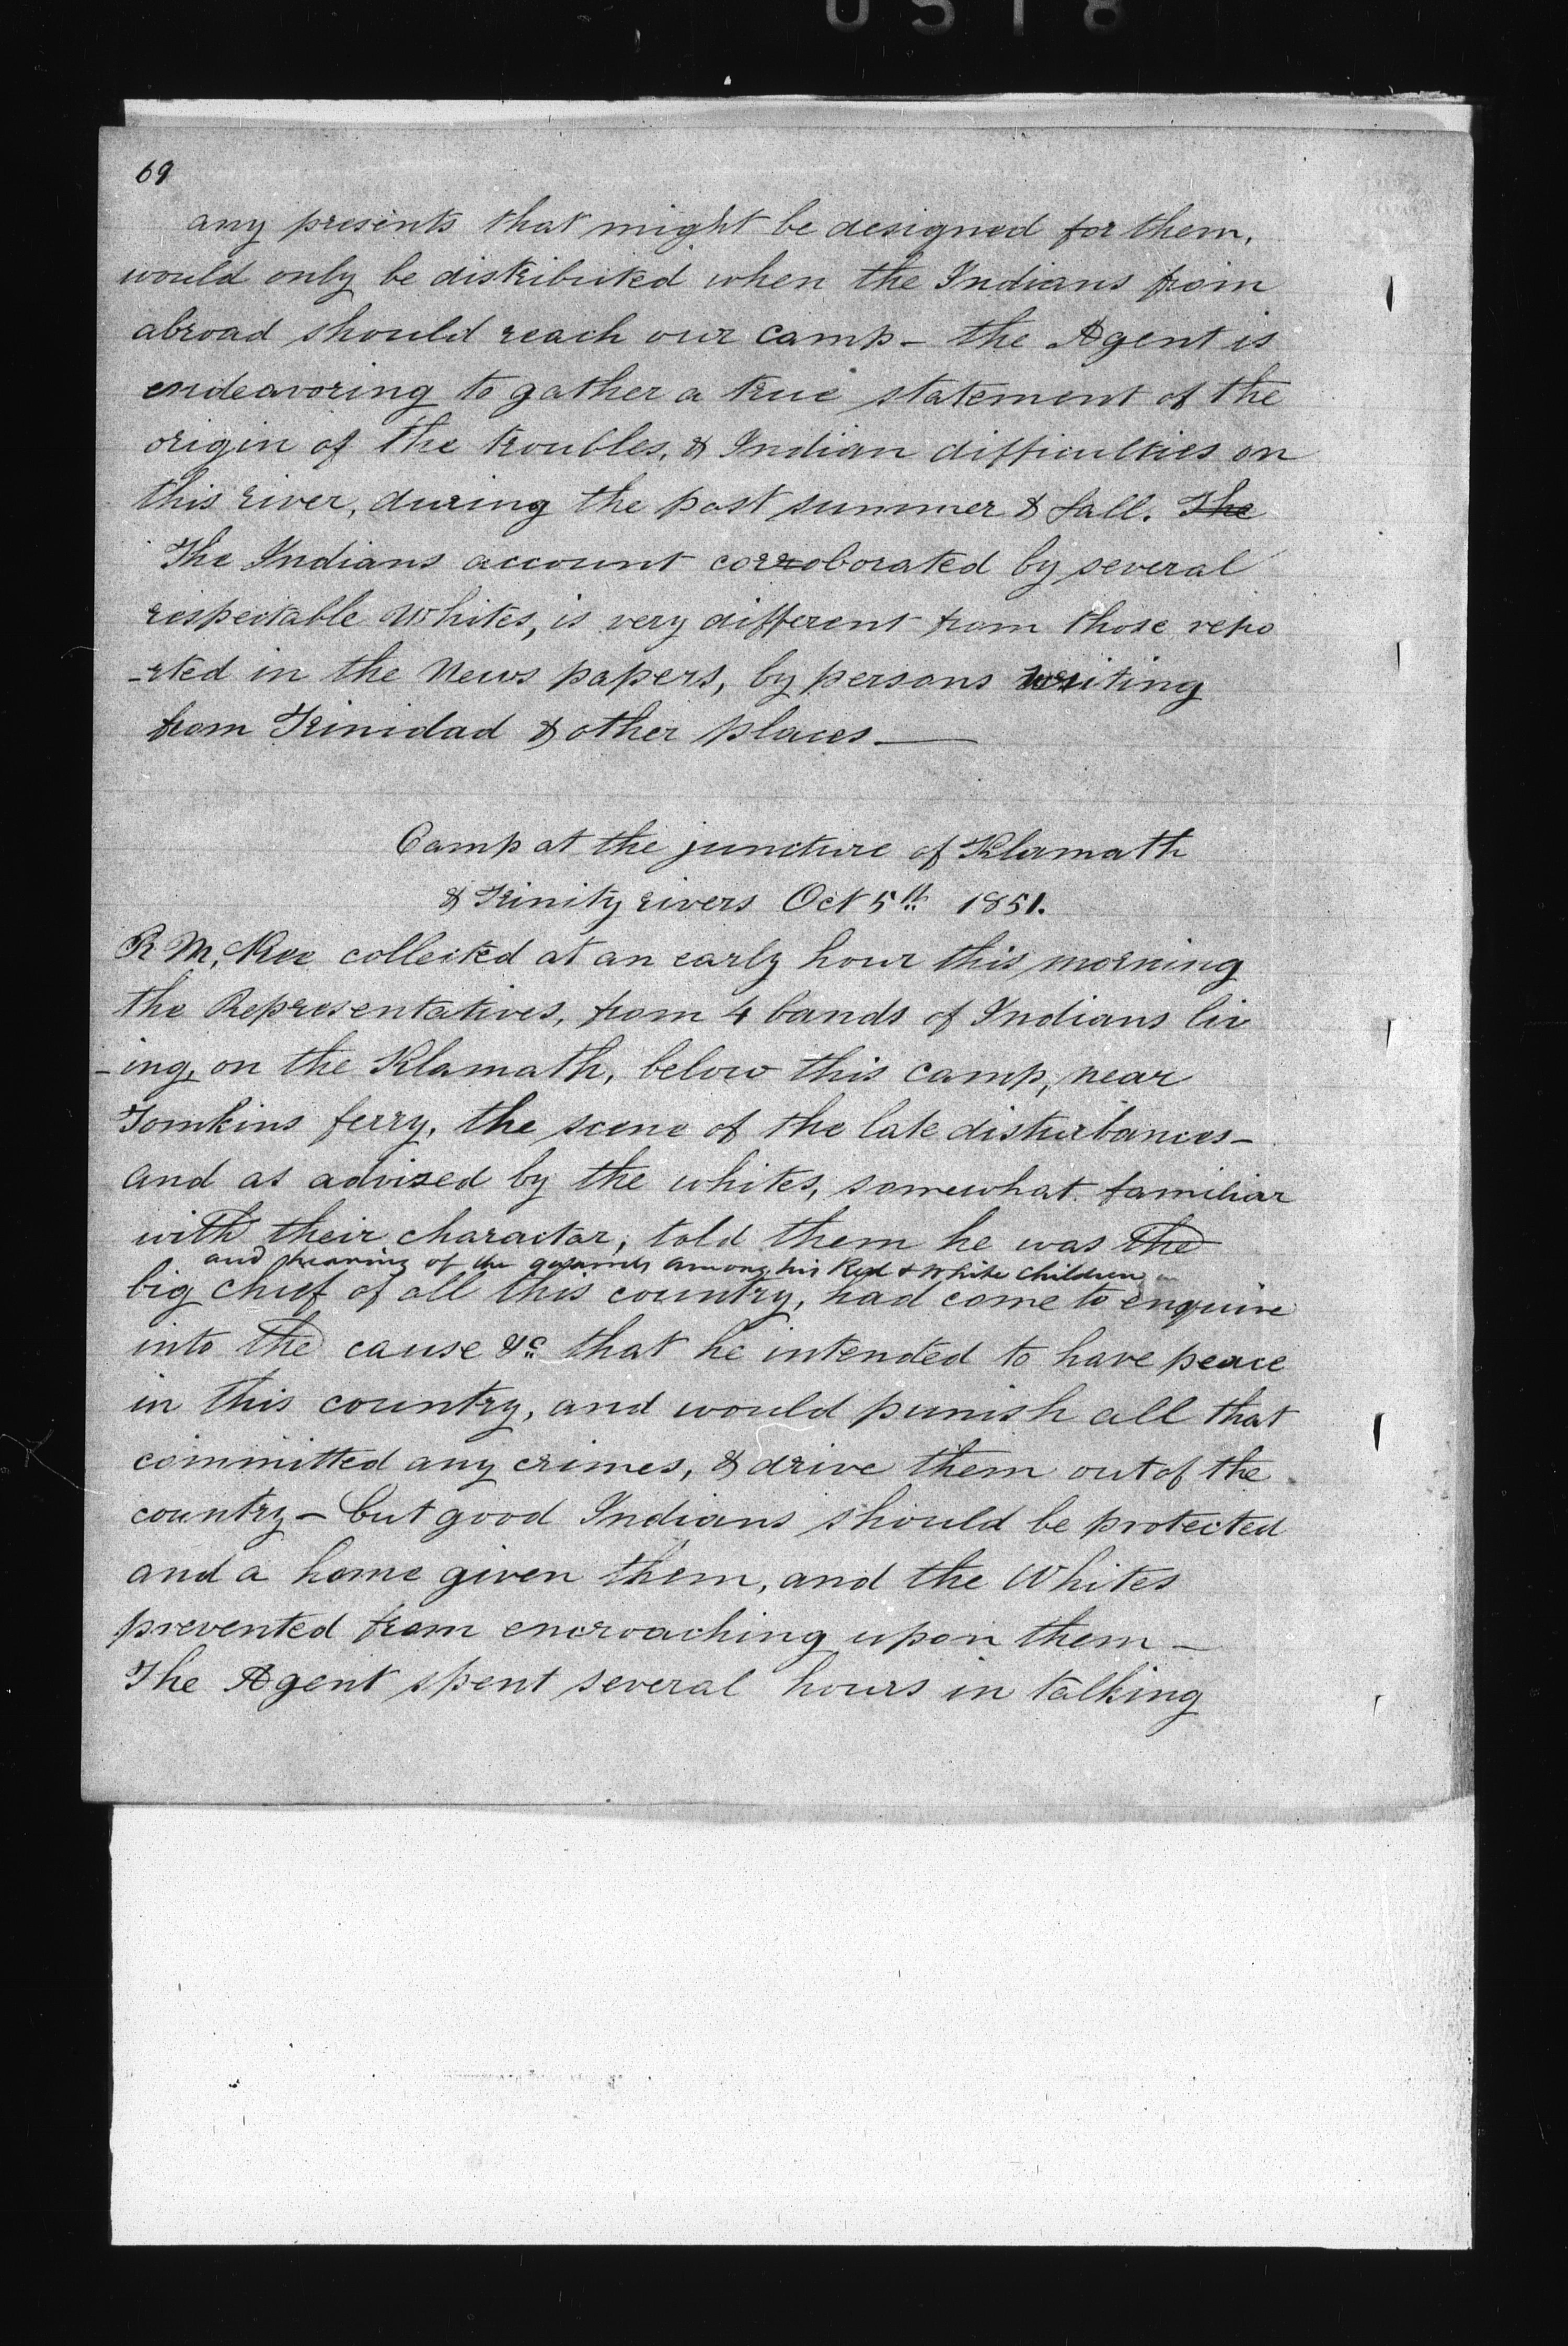 0518
69
any presents that might be designed for them,
would only be distributed when the Indians from
abroad should reach our camp - the Agent is
endeavoring to gather a true statement of the
origin of the troubles, & Indian difficulties on
this river, during the past summer & fall. The
The Indians account corroborated by several
respectable Whites, is very different from those repo
-rted in the News papers, by persons writing
from Trinidad & other places —
Camp at the juncture of Klamath
& Trinity rivers Oct 5th 1851.
R McKee collected at an early hour this morning
the Representatives, from 4 bands of Indians liv
-ing, on the Klamath, below this camp, near
Tomkins ferry, the scene of the late disturbances -
and as advised by the whites, somewhat familiar
with their charactar, told them he was the
and hearing of the quarrels among his Red & White Children
big chief of all this country, had come to enquire
into the cause &c that he intended to have peace
in this country, and would punish all that
committed any crimes, & drive them out of the
country - but good Indians should be protected
and a home given them, and the Whites
prevented from encroaching upon them -
The Agent spent several hours in talking